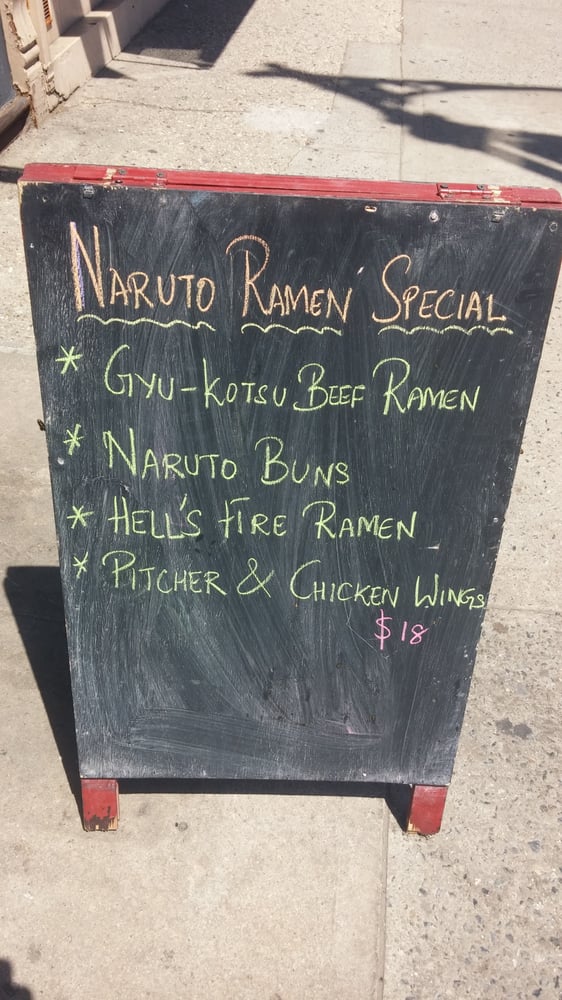 NARUTO RAMEN SPECIAL
* GYU-KOTSU BEEF RAMEN
* NARUTO BUNS
* HELL'S FIRE RAMEN
* PITCHER & CHICKEN WINGS
$18